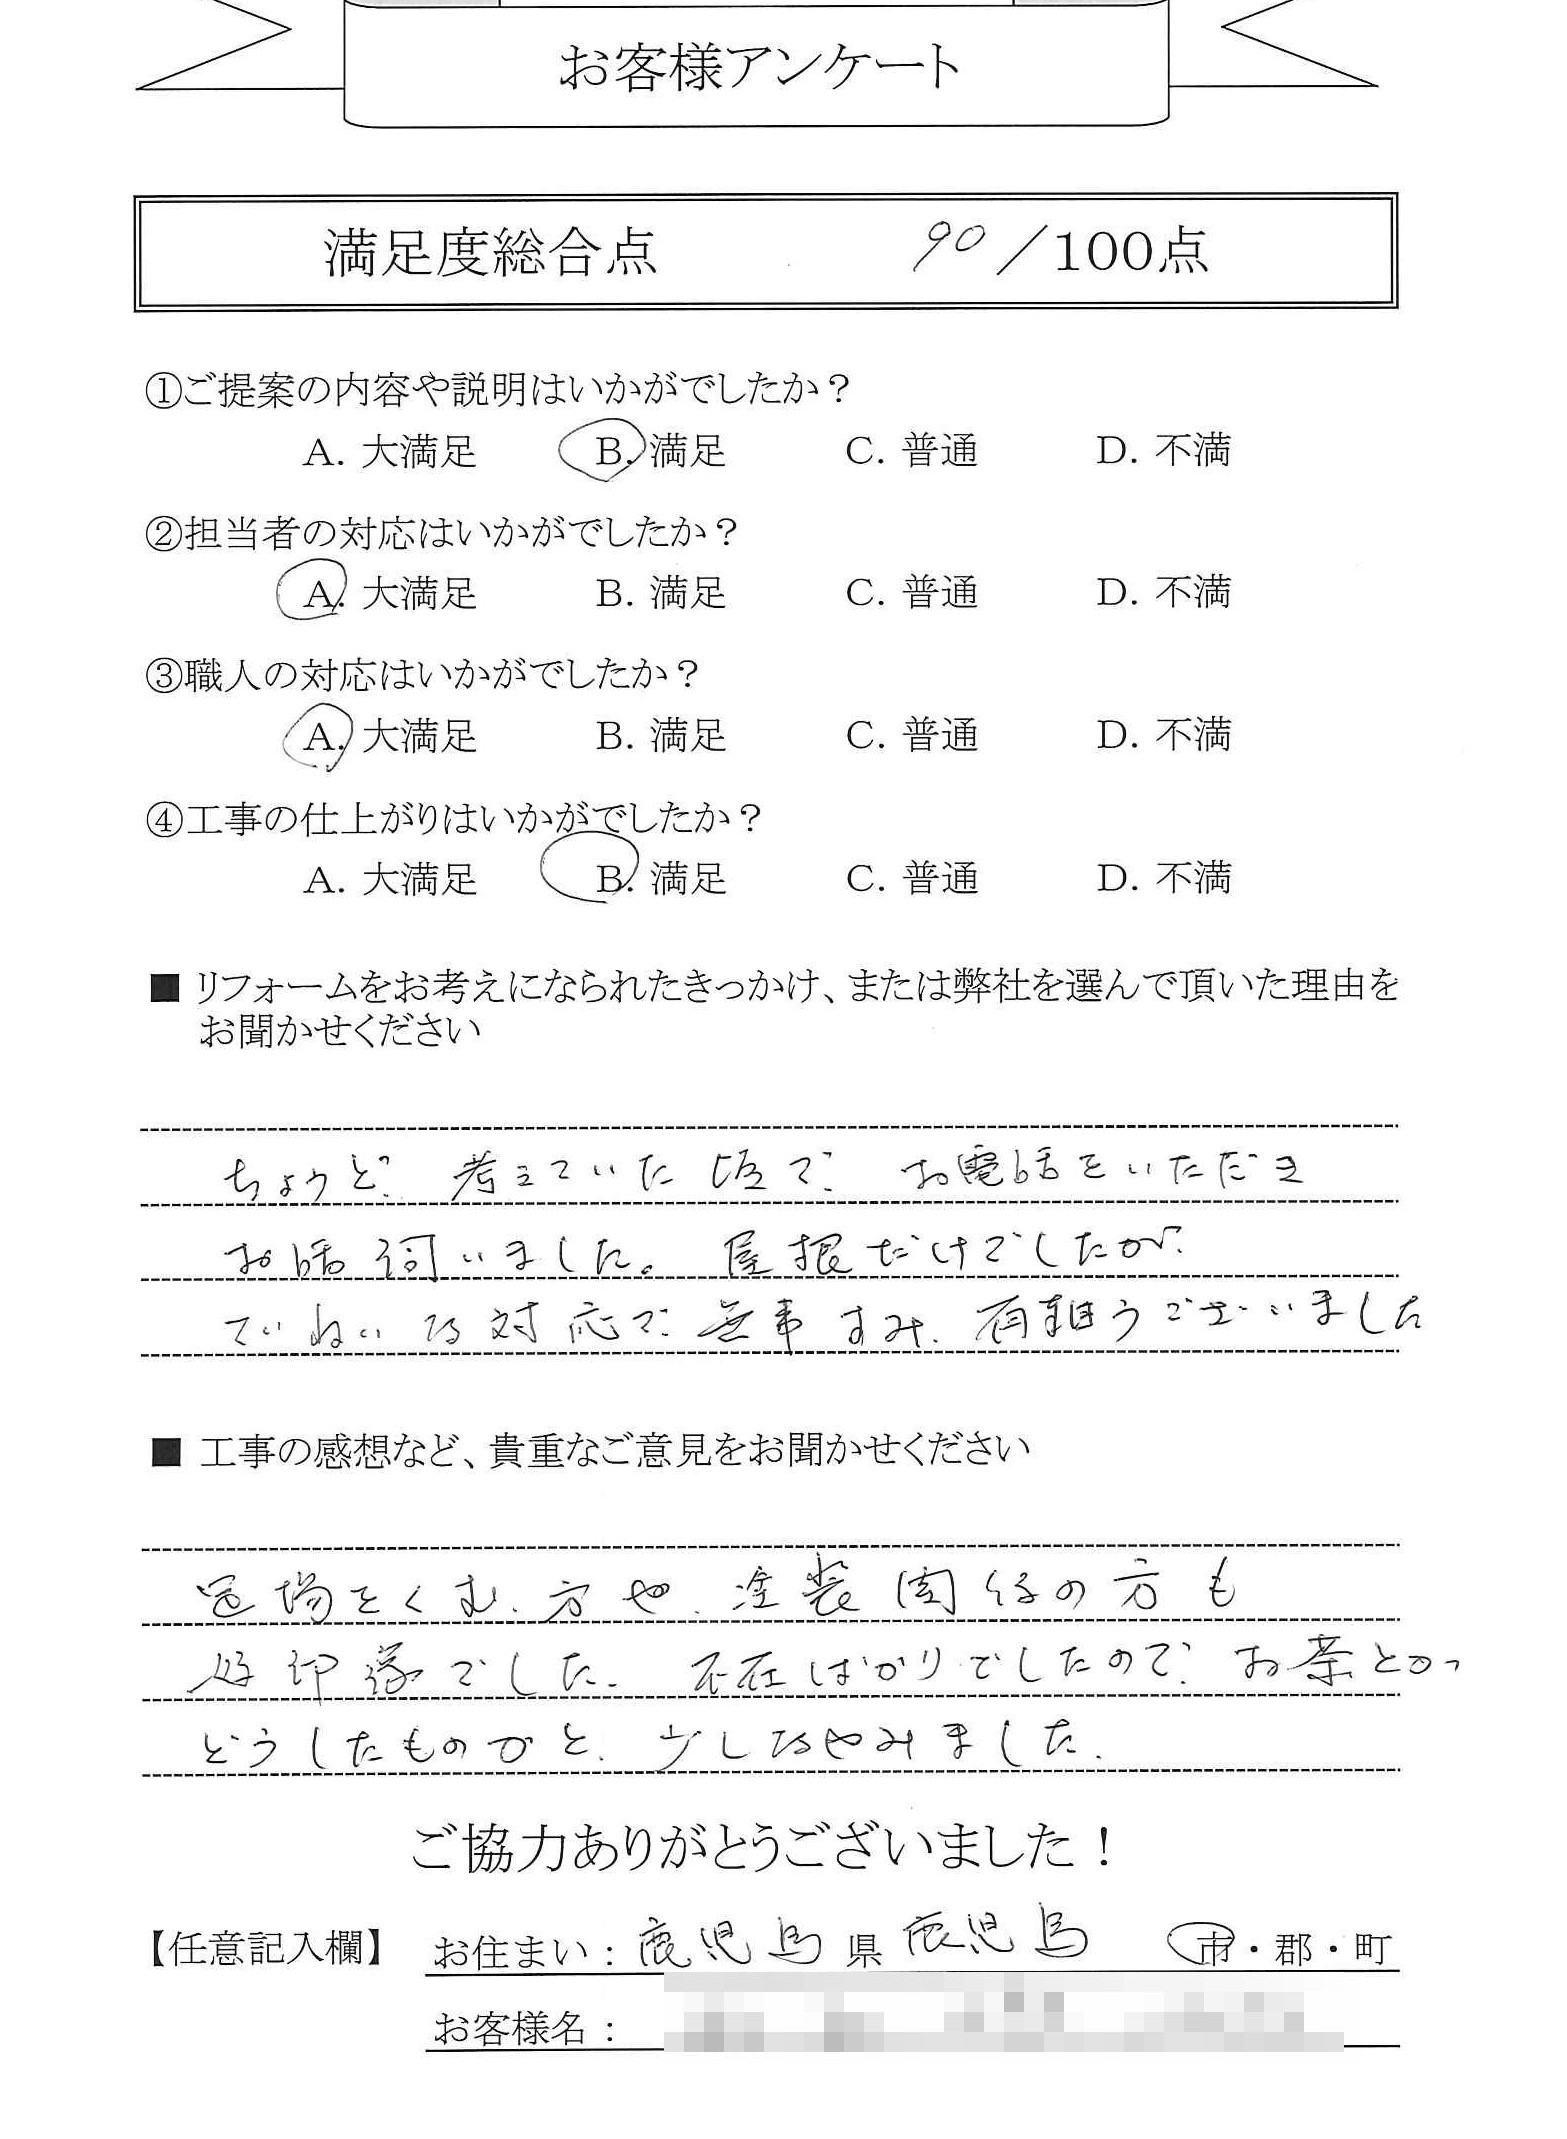 お客様アンケート
満足度総合点 90／100点
①ご提案の内容や説明はいかがでしたか？
A. 大満足 B. 満足 C. 普通 D. 不満
②担当者の対応はいかがでしたか？
A. 大満足 B. 満足 C. 普通 D. 不満
③職人の対応はいかがでしたか？
A. 大満足 B. 満足 C. 普通 D. 不満
④工事の仕上がりはいかがでしたか？
A. 大満足 B. 満足 C. 普通 D. 不満
■ リフォームをお考えになられたきっかけ、または弊社を選んで頂いた理由を
お聞かせください
ちょうど 考えていた頃で お電話をいただき
お話伺いました。 屋根だけでしたが
ていねいな対応で 無事すみ、有難うございました
■ 工事の感想など、貴重なご意見をお聞かせください
足場をくむ方や、塗装関係の方も
好印象でした。不在ばかりでしたので お茶とかっ
どうしたものかと、少しなやみました。
ご協力ありがとうございました！
【任意記入欄】 お住まい：鹿児島県鹿児島 市・郡・町
お客様名：